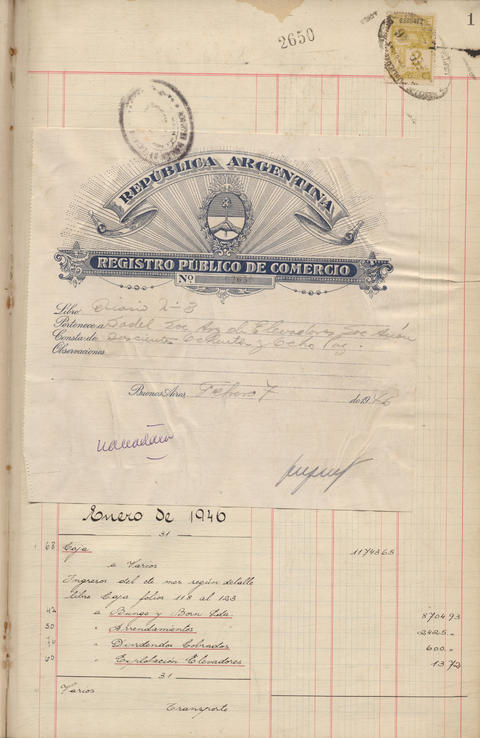 2650
1
REPÚBLICA ARGENTINA
REGISTRO PÚBLICO DE COMERCIO
Nº 2650
Libro: Diario Nº 3
Pertenece a: Sadel Soc Arg de Elevadores Soc Anón
Consta de: Seiscientos Ochenta y Ocho Pag.
Observaciones
Buenos Aires, Febrero 7 de 1946
Enero de 1946
31
68 Caja 11743.65
a Varios
Ingresos del cte mes según detalle
libro Caja folios 118 al 123
42 a Bunge y Born Ltda. 8704.93
30 " Arrendamientos 2425.=
70 " Dividendos Cobrados 600.=
60 " Explotación Elevadores 13.72
31
Varios
Transporte